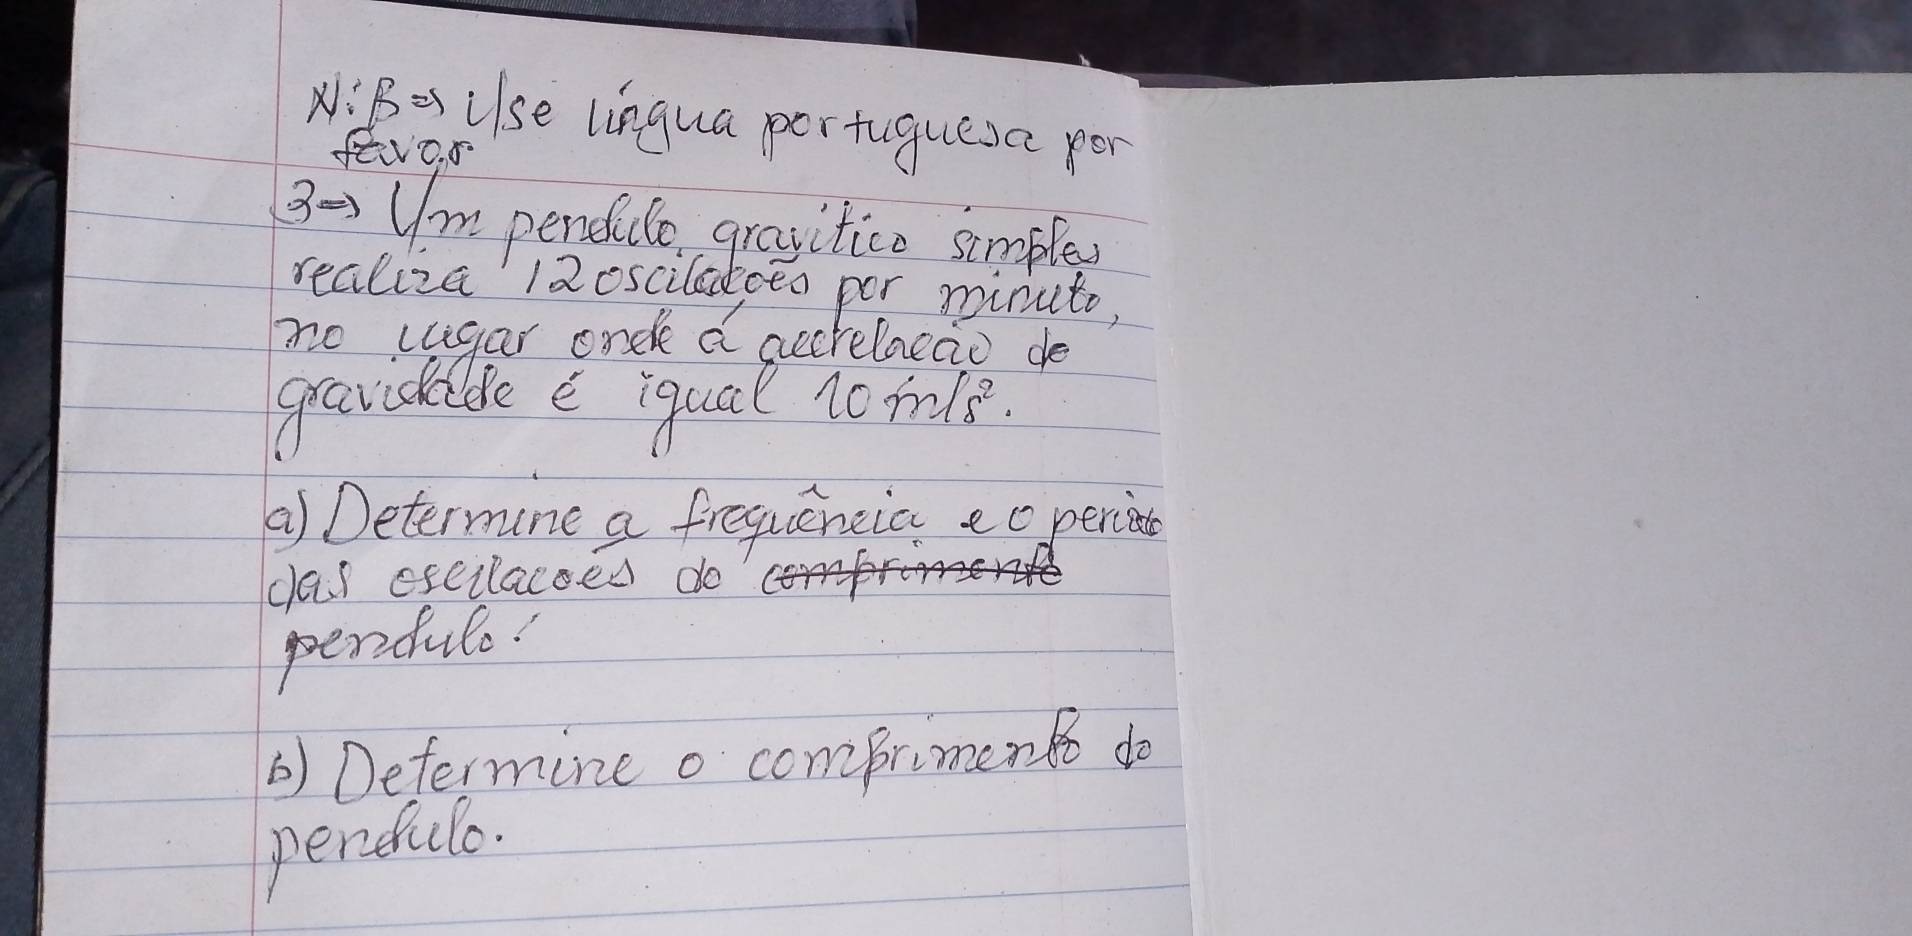 N:B⇒ Use língua portuguesa por
favor
3⇒ Um pendulo gravitico simples
realiza 12 oscilações por minuto,
no lugar onde á accrelação de
gravidade é igual 10 m/s².
a) Determine a frequência e o periodo
das oscilacoes do comprimento
pendulo!
b) Determine o comprimento do
pendulo.